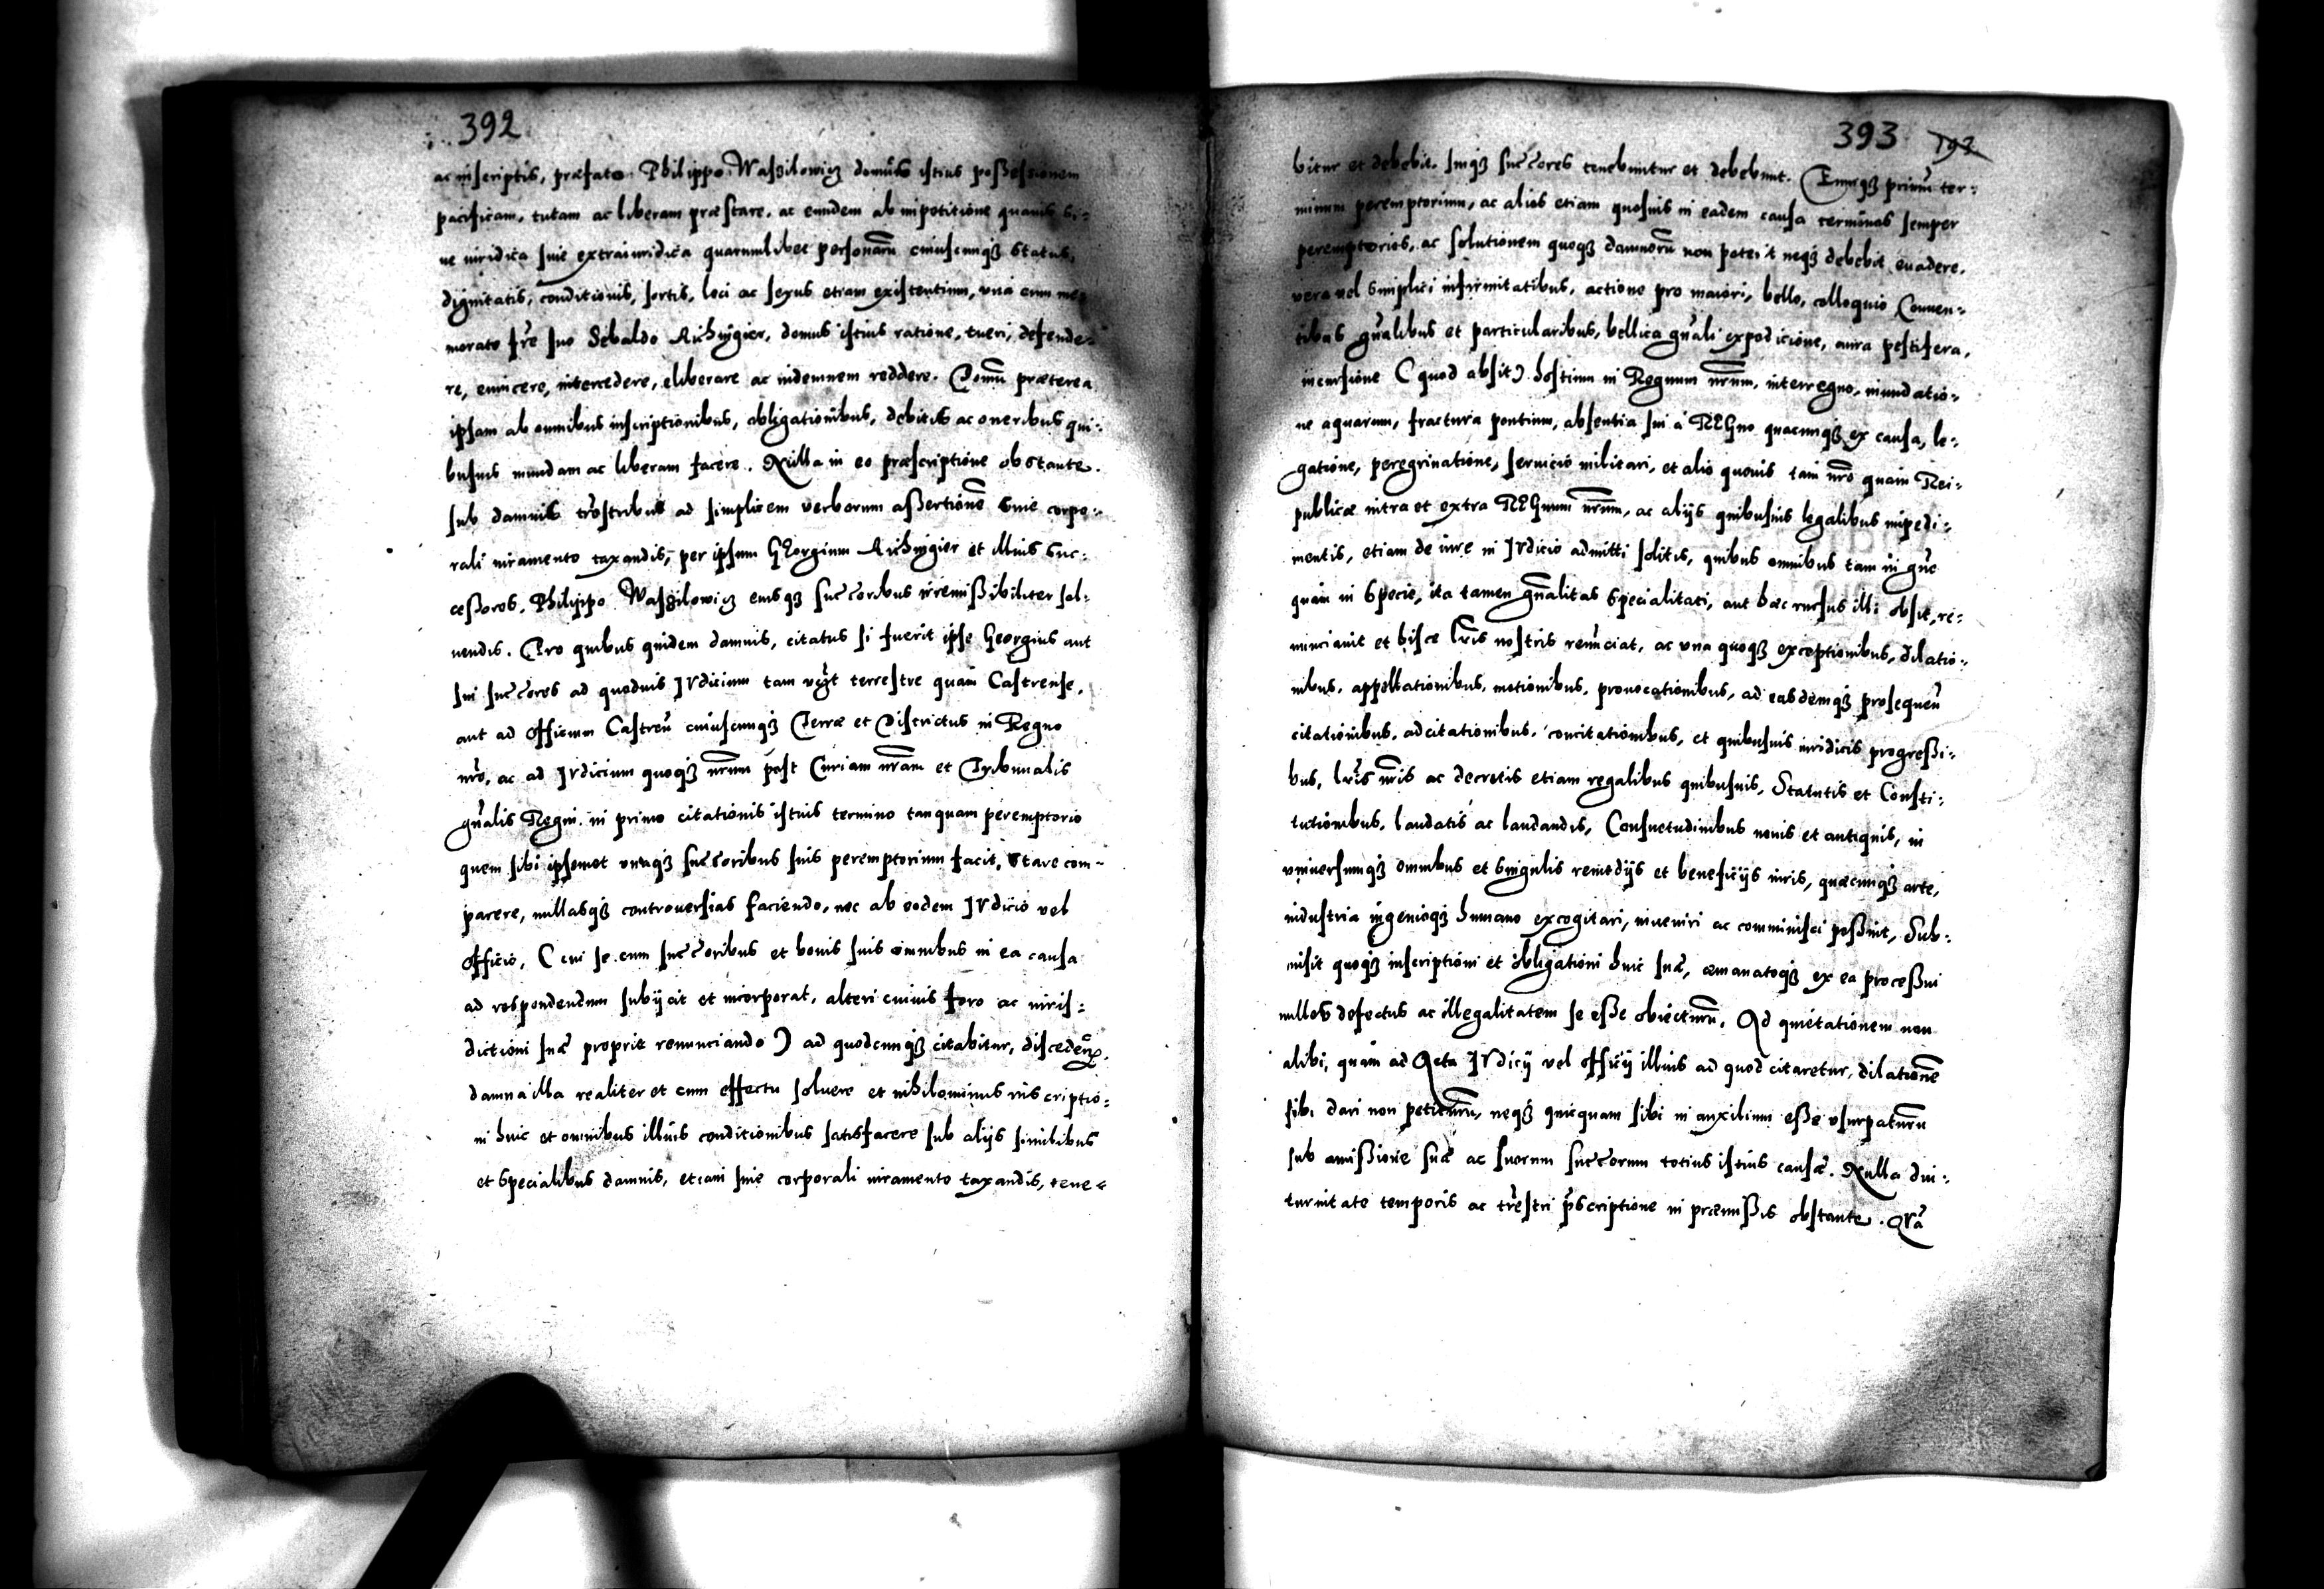 392
ac inscriptis, præfato Philippo Waszilowicz domus istius possessionem
pacificam, tutam ac liberam præstare, ac eundem ab impetitione quauis si-
ue iuridica siue extraiuridica quarumlibet personarũ cuiuscunqz status,
dignitatis, conditionis, sortis, loci ac sexus etiam existentium, vna cum me-
morato fr̃e suo Sebaldo Aichingier, domus istius ratione, tueri, defende-
re, euincere, intercedere, eliberare ac indemnem reddere. Domũ præterea
ipsam ab omnibus inscriptionibus, obligationibus, debitis ac oneribus qui-
busuis mundam ac liberam facere. Nulla in eo præscriptione obstante.
sub damnis tr̃estribus ad simplicem verborum assertionẽ siue corpo-
rali iuramento taxandis, per ipsum GEorgium Aichingier et illius suc-
cessores, Philippo Waszilowicz eiusqz succ̃oribus irremissibiliter sol-
uendis. Pro quibus quidem damnis, citatus si fuerit ipse Georgius aut
sui succ̃ores ad quoduis IVdicium tam vzt terrestre quam Castrense,
aut ad officium Castreñ cuiuscunqz Terræ et Districtus in Regno
nr̃o, ac ad IVdicium quoqz nr̃um post Curiam nr̃am et Trybunalis
gñalis Regni, in primo citationis istius termino tanquam peremptorio
quem sibi ipsemet vnaqz succ̃oribus suis peremptorium facit, stare com-
parere, nullasqz controuersias faciendo, nec ab eodem IVdicio vel
officio, (cui se cum succ̃oribus et bonis suis omnibus in ea causa
ad respondendum subijcit et incorporat, alteri cuiuis foro ac iuris-
dictioni suæ propriæ renunciando) ad quodcunqz citabitur, discedeñ.
damna illa realiter et cum effectu soluere et nihilominus inscriptio-
ni huic et omnibus illius conditionibus satisfacere sub alijs similibus
et specialibus damnis, etiam siue corporali iuramento taxandis, tene-
393 193
bitur et debebit. suiqz succ̃ores tenebuntur et debebunt. Eumqz primũ ter-
minum peremptorium, ac alios etiam quosuis in eadem causa terminos semper
peremptorios, ac solutionem quoqz damnorũ non poterit neqz debebit euadere.
vera vel simplici infirmitatibus, actione pro maiori, bello, colloquio Conuen-
tibus gñalibus et particularibus, bellica gñali expeditione, aura pestifera,
incursione (quod absit) hostium in Regnum nr̃um, interregno, inundatio-
ne aquarum, fractura pontium, absentia sui à REgno quacunqz ex causa, le-
gatione, peregrinatione, seruicio militari, et alio quouis tam nr̃o quam Rei-
publicæ intra et extra REgnum nr̃um, ac alijs quibusuis legalibus impedi-
mentis, etiam de iure in IVdicio admitti solitis, quibus omnibus tam in gñe
quam in specie, ita tamen gñalitas specialitati, aut hæc rursus illi obsit, re-
nunciauit et hisce lr̃is nostris renũciat, ac vna quoqz exceptionibus, dilatio-
nibus, appellationibus, motionibus, prouocationibus, ad easdemqz prosequeñ
citationibus, adcitationibus, concitationibus, et quibusuis iuridicis progressi-
bus, lr̃is nr̃is ac decretis etiam regalibus quibusuis, Statutis et Consti-
tutionibus, laudatis ac laudandis, Consuetudinibus nouis et antiquis, in
vniuersumqz omnibus et singulis remedijs et beneficijs iuris, quæcunqz arte,
industria ingenioqz humano excogitari, inueniri ac comminisci possint, Sub-
misit quoqz inscriptioni et obligationi huic suæ, æmanatoqz ex ea processui
nullos defectus ac illegalitatem se esse obiecturũ. Ad quietationem non
alibi, quam ad Acta IVdicij vel officij illius ad quod citaretur, dilationẽ
sibi dari non petiturũ, neqz quicquam sibi in auxilium esse vsurpaturũ
sub amissione suæ ac suorum succ̃orum totius istius causæ. Nulla diu-
turnitate temporis ac tr̃estri p̃scriptione in præmissis obstante. QVã